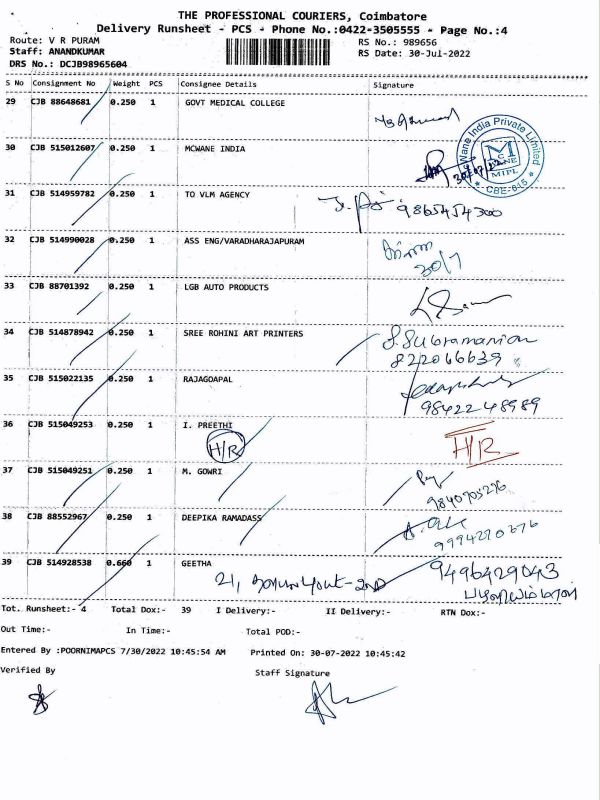 THE PROFESSIONAL COURIERS, Coimbatore
Delivery Runsheet - PCS - Phone No.:0422-3505555 - Page No.:4
Route: V R PURAM RS No.: 989656
Staff: ANANDKUMAR RS Date: 30-Jul-2022
DRS No.: DCJB98965604
S No Consignment No Weight PCS Consignee Details Signature
29 CJB 88648681 0.250 1 GOVT MEDICAL COLLEGE
30 CJB 515012607 0.250 1 MCWANE INDIA
McWane India Private Limited
MIPL
* CBE-045 *
31 CJB 514959782 0.250 1 TO VLM AGENCY 9865454300
32 CJB 514990028 0.250 1 ASS ENG/VARADHARAJAPURAM
30/7
33 CJB 88701392 0.250 1 LGB AUTO PRODUCTS
34 CJB 514878942 0.250 1 SREE ROHINI ART PRINTERS S.Subramanian
822066639
35 CJB 515022135 0.250 1 RAJAGOAPAL
9842248989
36 CJB 515049253 0.250 1 I. PREETHI
H/R H/R
37 CJB 515049251 0.250 1 M. GOWRI
9840705276
38 CJB 88552967 0.250 1 DEEPIKA RAMADASS
9994270676
39 CJB 514928538 0.660 1 GEETHA 9496429043
21,
Tot. Runsheet:- 4 Total Dox:- 39 I Delivery:- II Delivery:- RTN Dox:-
Out Time:- In Time:- Total POD:-
Entered By :POORNIMAPCS 7/30/2022 10:45:54 AM Printed On: 30-07-2022 10:45:42
Verified By Staff Signature